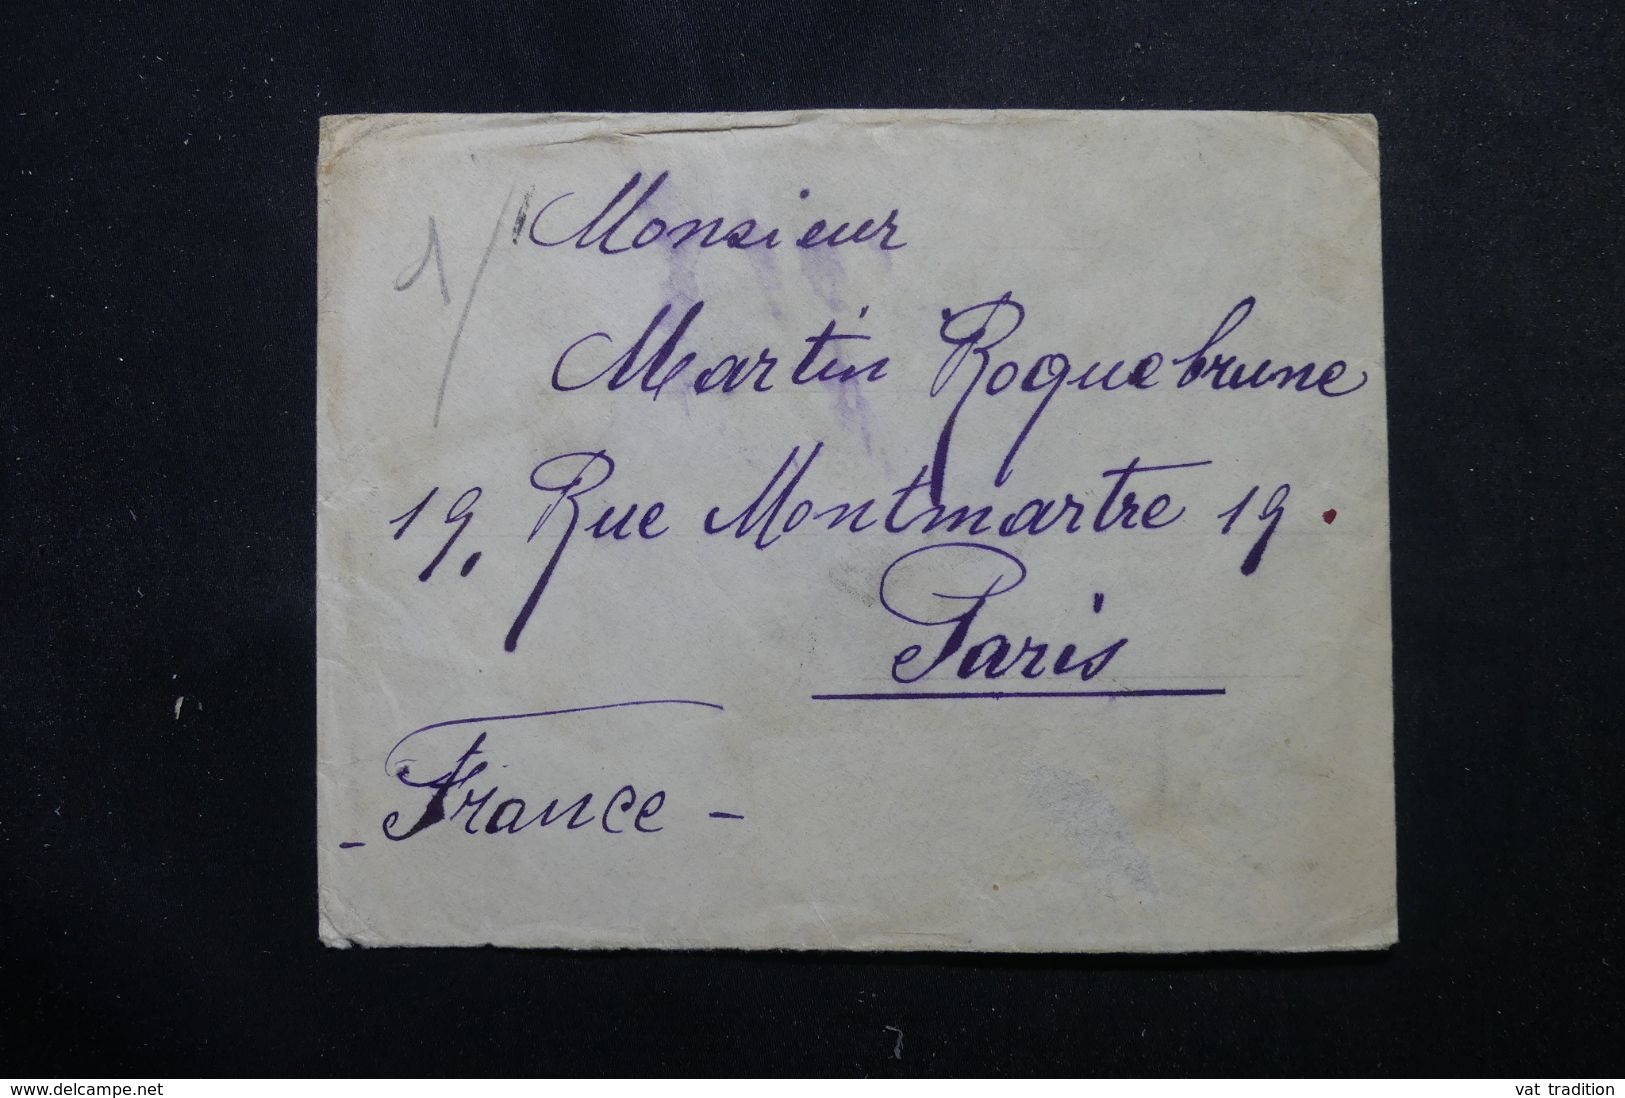 1/
Monsieur
Martin Roquebrune
19, Rue Montmartre 19.
Paris
- France -
www.delcampe.net
vat tradition